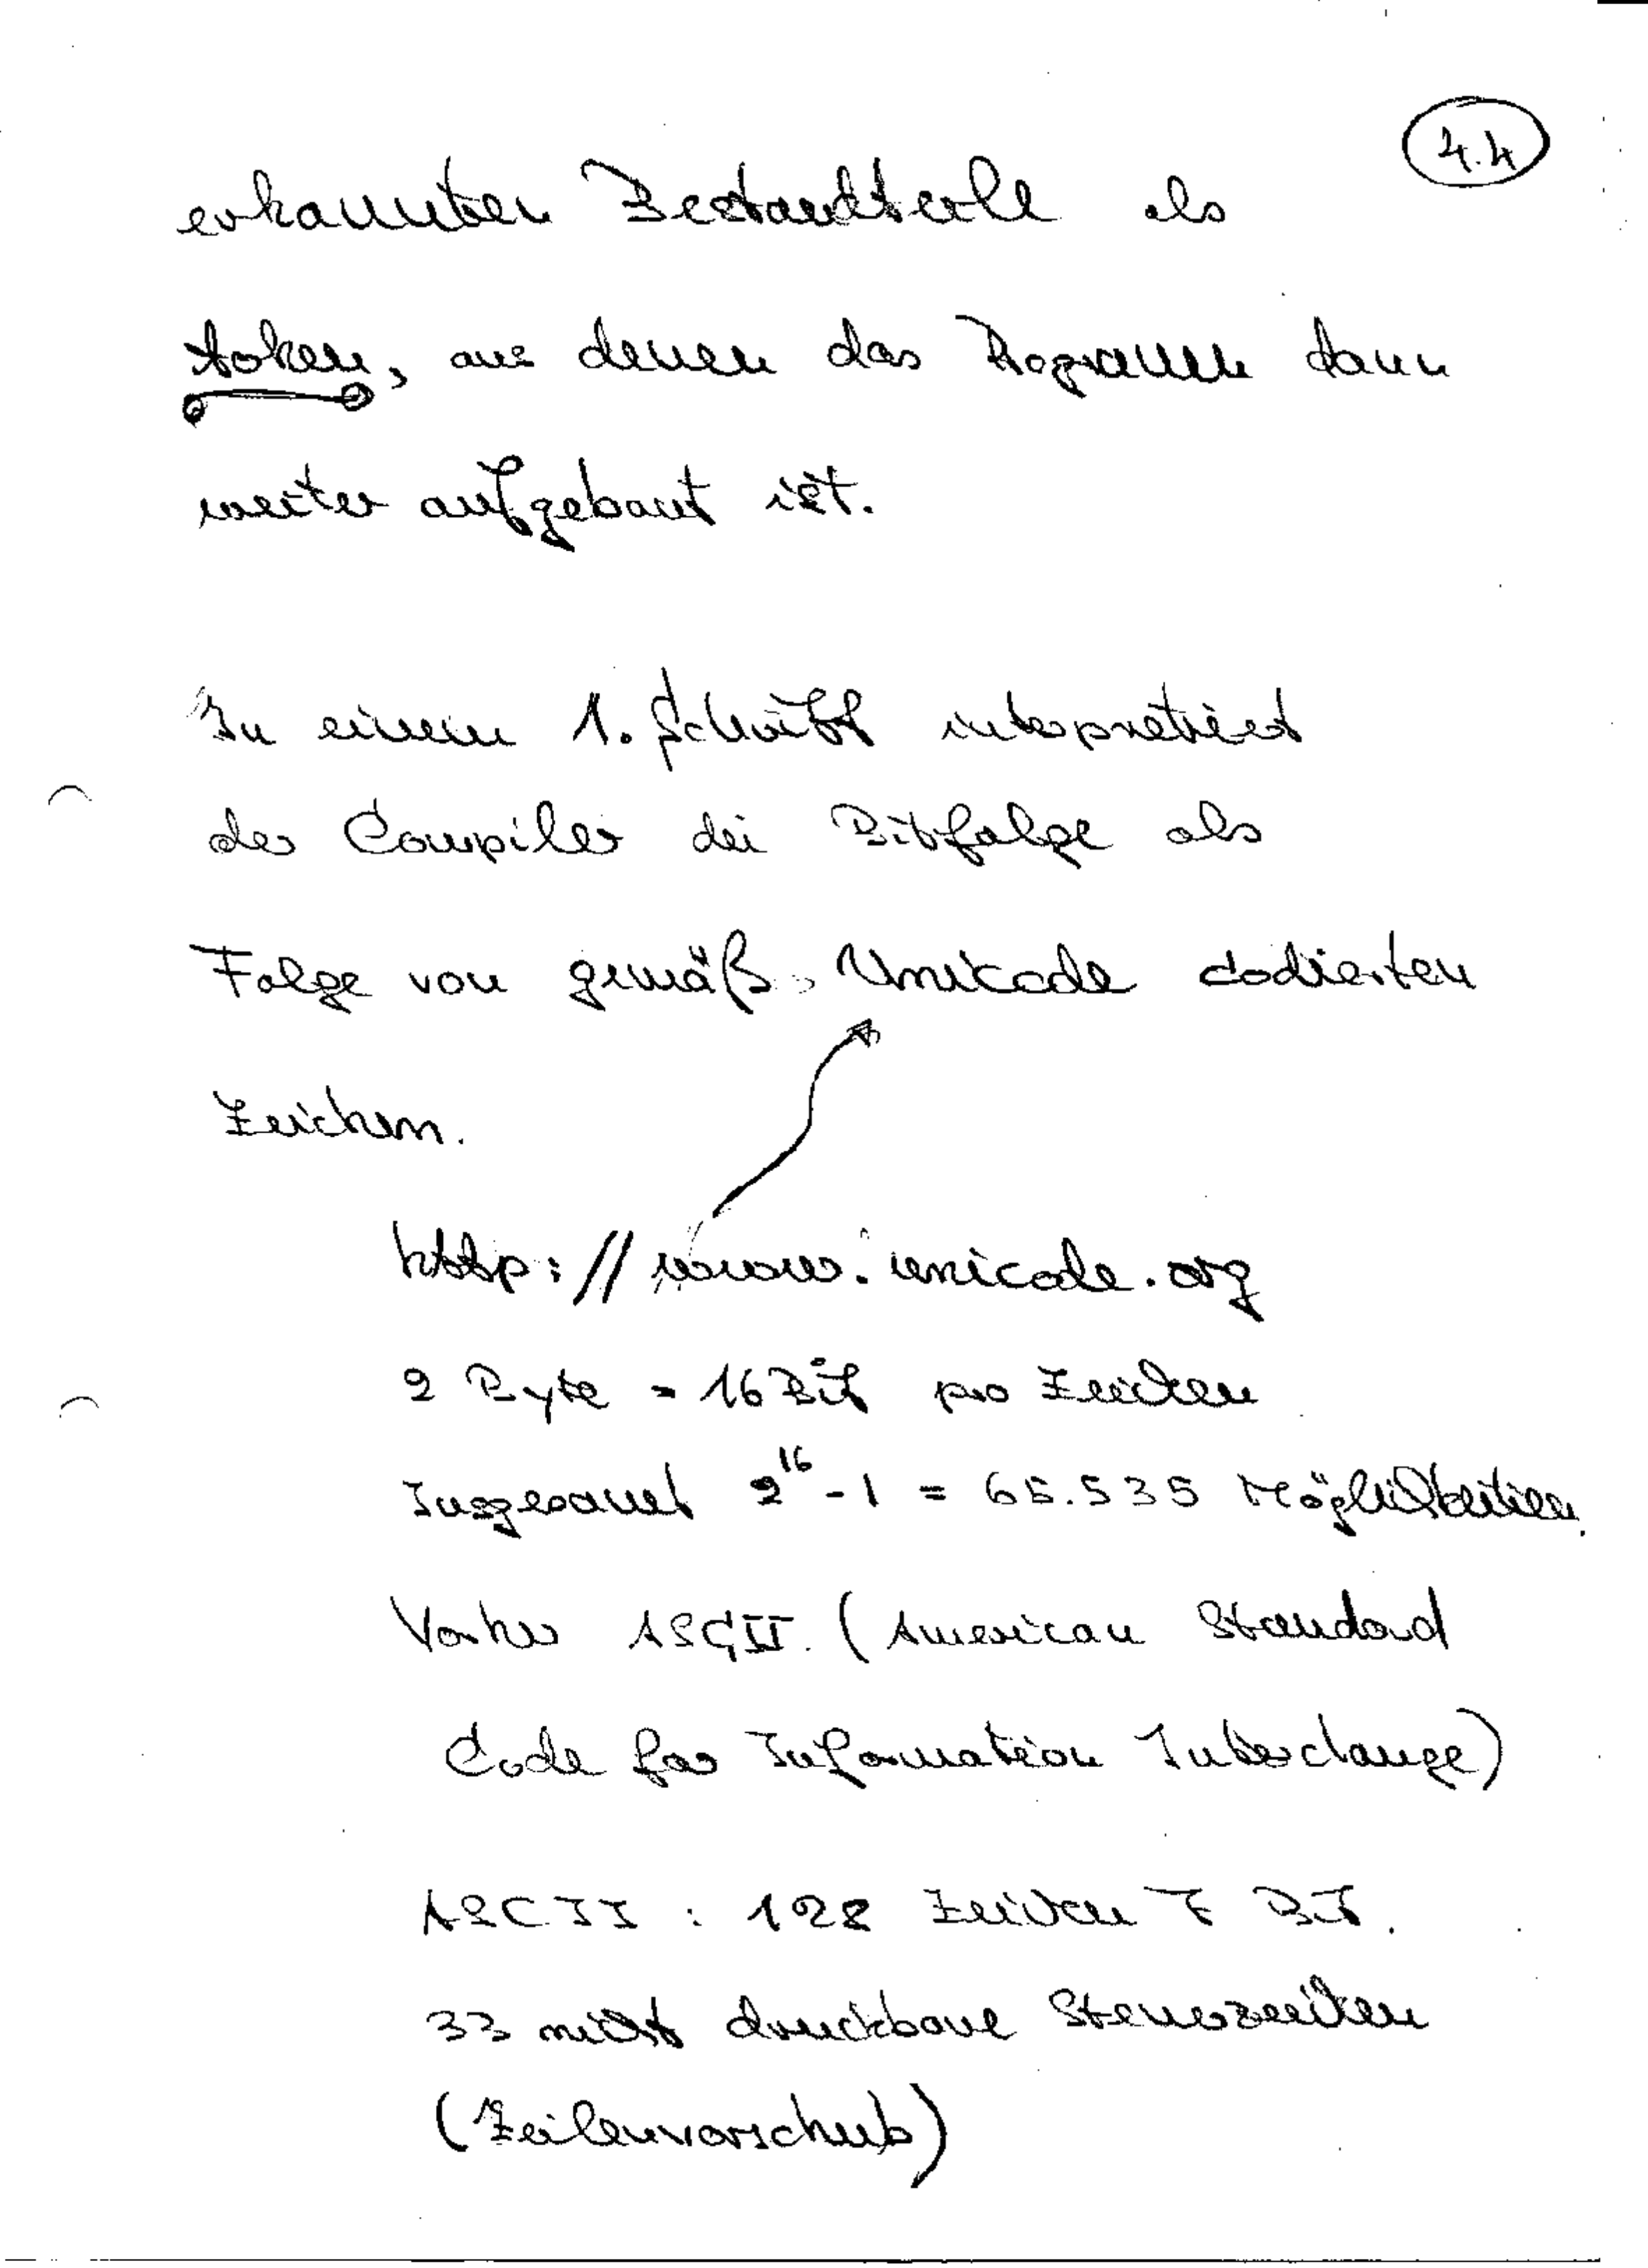 4.4
erkannten Bestandteile als
token, aus denen das Programm dann
weiter aufgebaut ist.
In einem 1. Schritt interpretiert
der Compiler die Bitfolge als
Folge von gemäß Unicode codierten
Zeichen.
http://www.unicode.org
2 Byte = 16 Bit pro Zeichen
Insgesamt 2^16 - 1 = 65.535 Möglichkeiten.
Vorher ASCII. (American Standard
Code for Information Interchange)
ASCII : 128 Zeichen 7 Bit.
33 nicht druckbare Steuerzeichen
(Zeilenvorschub)